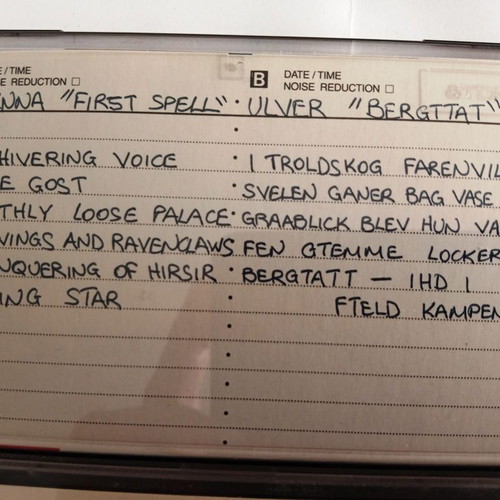 E/TIME
E REDUCTION
NNA "FIRST SPELL"
HIVERING VOICE
E GOST
THLY LOOSE PALACE
VINGS AND RAVENCLAWS
NQUERING OF HIRSIR
ING STAR
B DATE/TIME
NOISE REDUCTION
ULVER "BERGTTAT"
I TROLDSKOG FARENVIL
SVELEN GANER BAG VASE
GRAABLICK BLEV HUN VA
FEN GTEMME LOCKER
BERGTATT — IHD I
FTELD KAMPEN